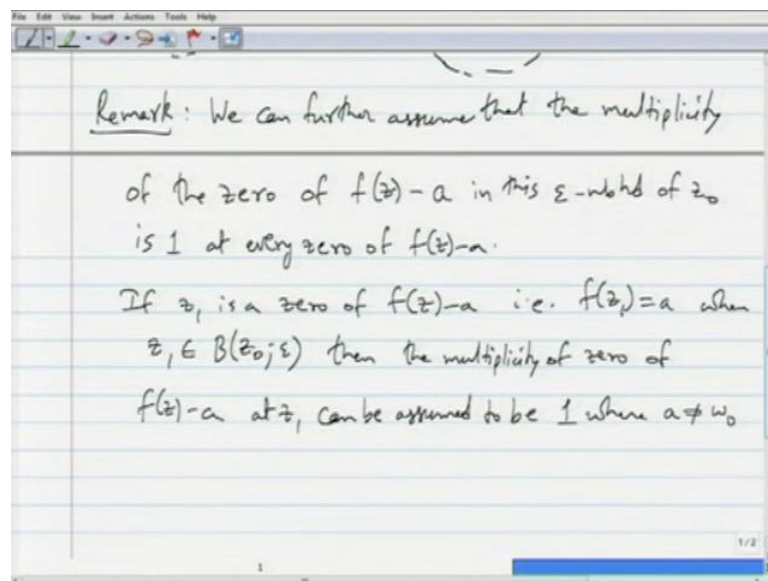 File Edit View Insert Actions Tools Help
Remark: We can further assume that the multiplicity
of the zero of f(z)-a in this ε-nbhd of z₀
is 1 at every zero of f(z)-a.
If z₁ is a zero of f(z)-a i.e. f(z₁)=a when
z₁ ∈ B(z₀;ε) then the multiplicity of zero of
f(z)-a at z₁ can be assumed to be 1 where a≠w₀
1/2
1